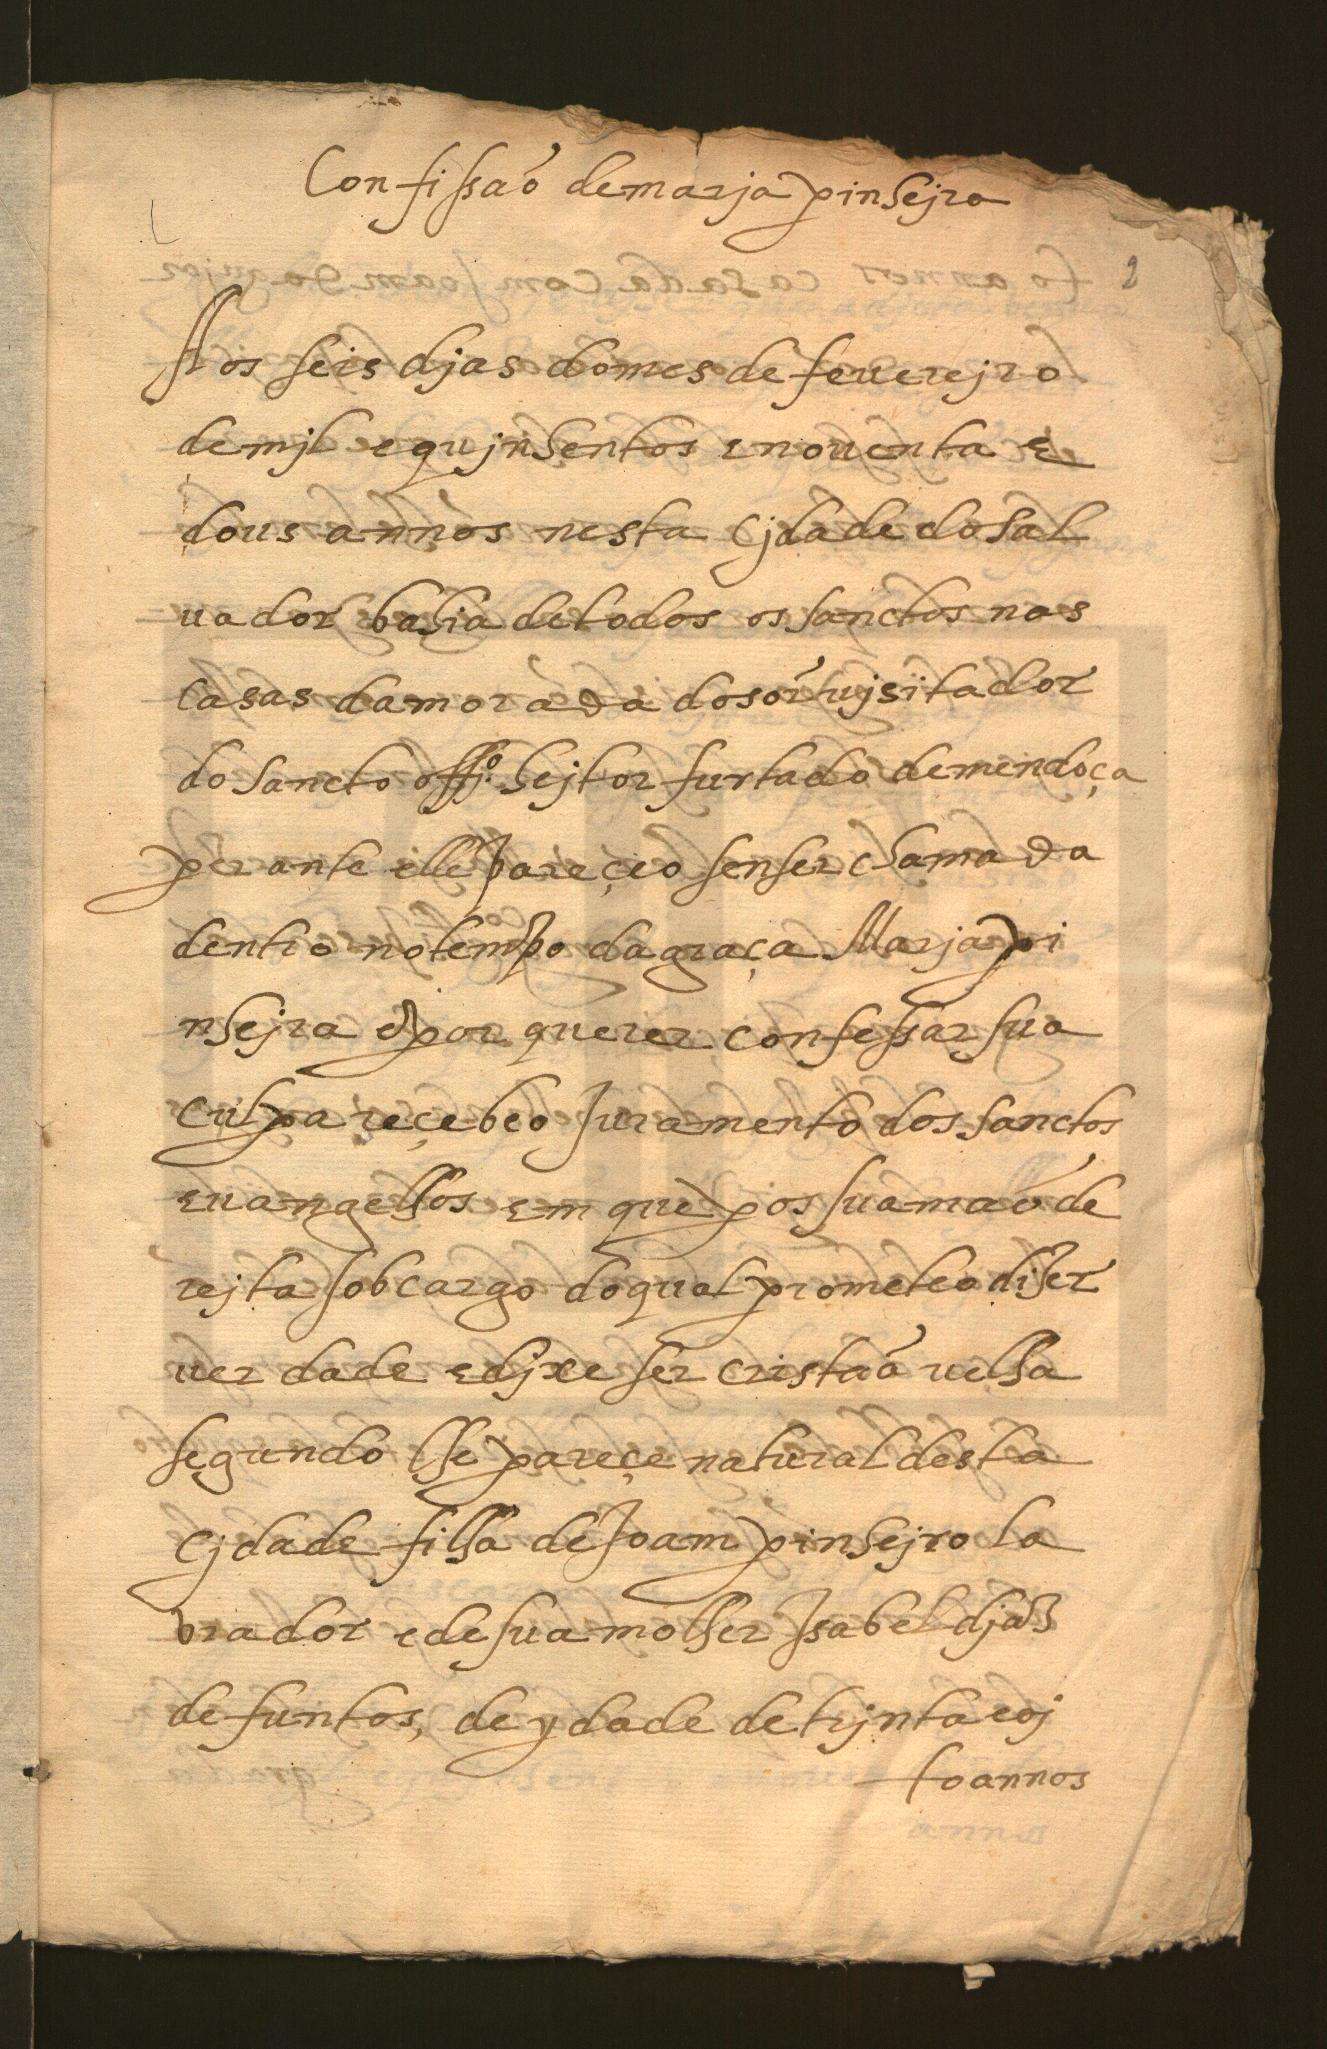 Confissaõ de marja pinhejra
2
Aos seis djas do mes de feuerejro
de mjl e qujnhentos e nouenta e
dous annos nesta Cjdade do sal
uador bahia de todos os sanctos nas
Casas da morada do sor̃ ujsitador
do sancto offj.º hejtor furtado de mendoça
perante elle pareçeo sen ser chamada
dentro no tempo da graça Marja pi
nhejra e por querer confessar sua
Culpa reçebeo Juramento dos sanctos
euangelhos em que pos sua maõ de
rejta sob cargo do qual prometeo diser
uerdade e djxe ser cristaõ uelha
segundo lhe pareçe natural desta
Cjdade filha de Joam pinhejro la
brador e de sua molher Isabel djaz
defuntos, de ydade de trjnta e oj
to annos